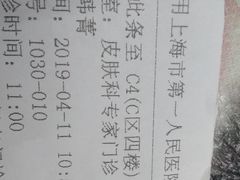 用上海市第一人民医院
此条至 C4(C区四楼)
室: 皮肤科专家门诊
韩菁
间: 2019-04-11 10:
号: 1030-010
诊时间: 11:00